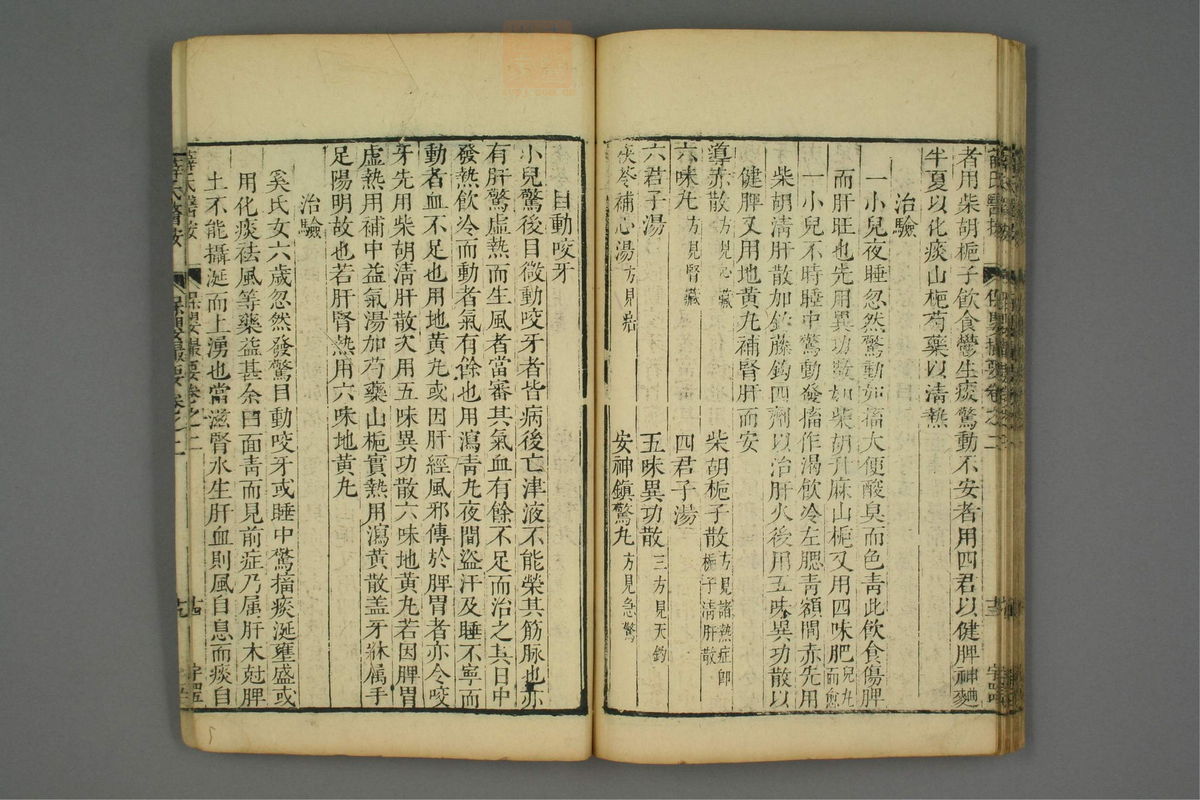 者用柴胡梔子飲食鬱生痰驚動不安者用四君以健脾神麯
半夏以化痰山梔芍藥以清熱
治驗
一小兒夜睡忽然驚動如搐大便酸臭而色靑此飲食傷脾
而肝旺也先用異功散加柴胡升麻山梔又用四味肥兒丸而愈
一小兒不時睡中驚動發搐作渴飲冷左腮靑額間赤先用
柴胡淸肝散加鈎藤鈎四劑以治肝火後用五味異功散以
健脾又用地黃丸補腎肝而安
導赤散方見心臟 柴胡梔子散方見諸熱症卽梔子淸肝散
六味丸方見腎臟 四君子湯
六君子湯 五味異功散三方見天釣
茯苓補心湯 安神鎭驚丸方見急驚
目動咬牙
小兒驚後目微動咬牙者皆病後亡津液不能榮其筋脉也亦
有肝驚虛熱而生風者當審其氣血有餘不足而治之其日中
發熱飲冷而動者氣有餘也用瀉靑丸夜間盜汗及睡不寧而
動者血不足也用地黃丸或因肝經風邪傳於脾胃者亦令咬
牙先用柴胡淸肝散次用五味異功散六味地黃丸若因脾胃
虛熱用補中益氣湯加芍藥山梔實熱用瀉黃散盖牙牀属手
足陽明故也若肝腎熱用六味地黃丸
治驗
奚氏女六歲忽然發驚目動咬牙或睡中驚搐痰涎壅盛或
用化痰祛風等藥益甚余曰面靑而見前症乃属肝木尅脾
土不能攝涎而上湧也當滋腎水生肝血則風自息而痰自
薛氏醫按 保嬰撮要卷之二